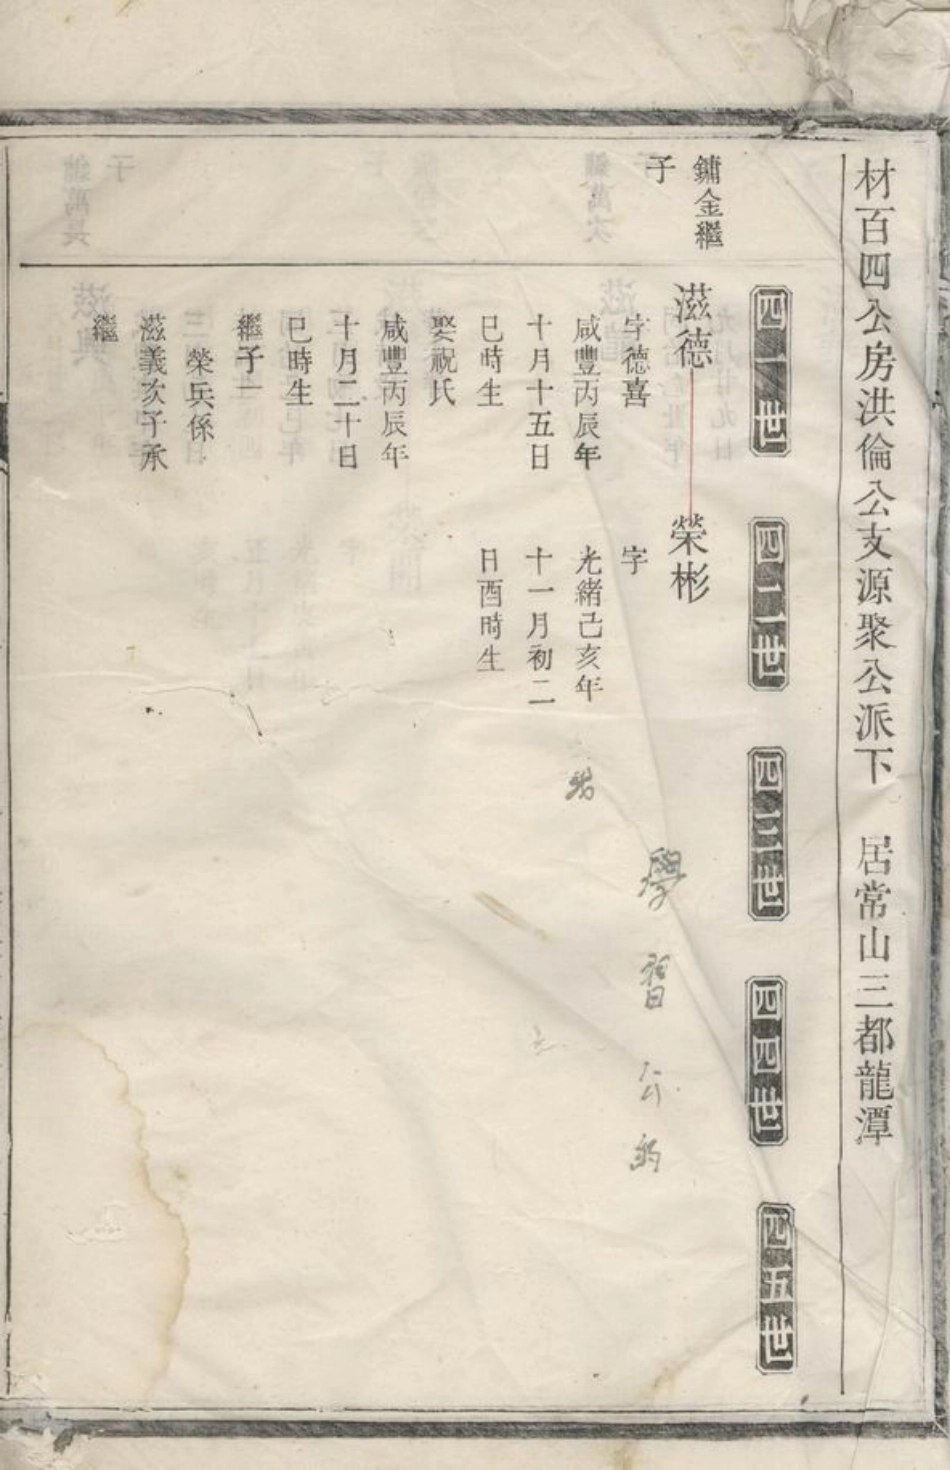 材百四公房洪倫公支源聚公派下　居常山三都龍潭
四一世
四二世
四三世
四四世
四五世
鏞金繼
子
滋德
字德喜
咸豐丙辰年
十月十五日
巳時生
娶祝氏
咸豐丙辰年
十月二十日
巳時生
繼子一
榮兵係
滋義次子承
繼
榮彬
字
光緒己亥年
十一月初二
日酉時生
學習公